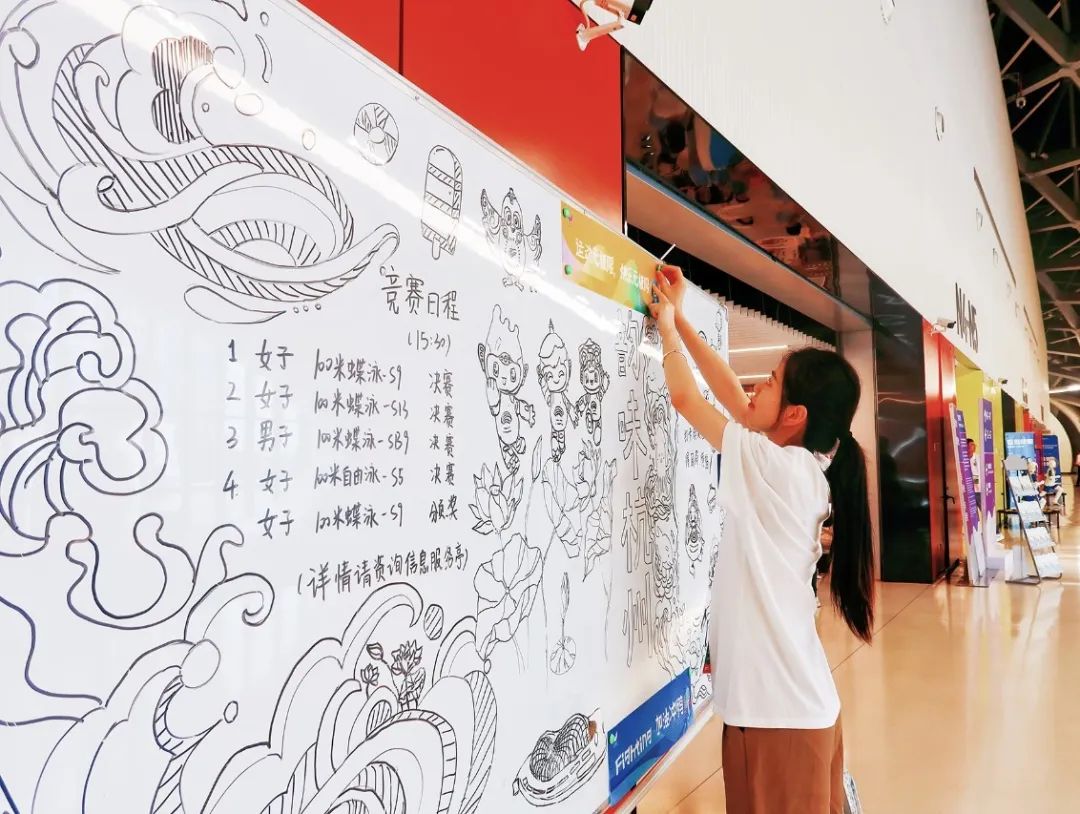 竞赛日程
(15:30)
1 女子 100米蝶泳-S9 决赛
2 女子 100米蝶泳-S13 决赛
3 男子 100米蝶泳-SB9 决赛
4 女子 100米自由泳-S5 决赛
女子 100米蝶泳-S9 颁奖
(详情请资询信息服务亭)
运动无极限,
味杭州
Fighting 加油
N4-N5